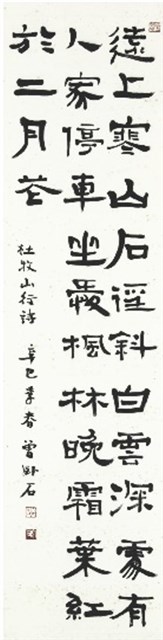 遠上寒山石徑斜白雲深處有
人家停車坐愛楓林晚霜葉紅
於二月花
杜牧山行詩 辛巳季春 曾 石